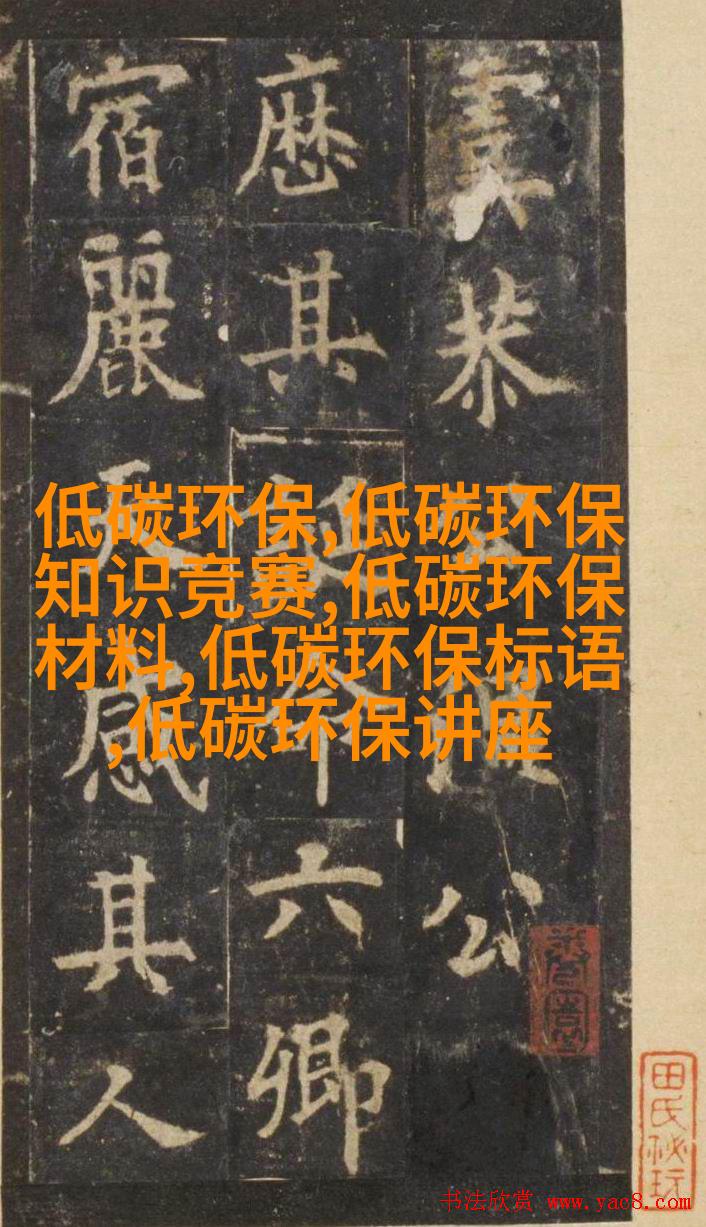 恭公
歴其命六卿
宿麗天感其人
低碳环保,低碳环保
知识竞赛,低碳环保
材料,低碳环保标语
,低碳环保讲座
田氏秘玩
书法欣赏 www.yac8.com